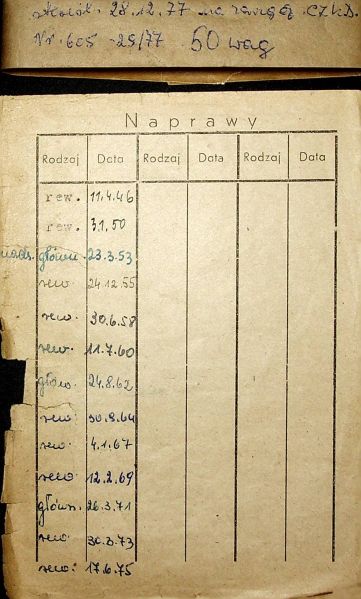 28.12.77 na
Nr. 605-25/77 50 wag
Naprawy
Rodzaj Data Rodzaj Data Rodzaj Data
rew. 11.4.46
rew. 3.1.50
główn. 23.3.53
rew 24.12.55
rew. 30.6.58
rew. 11.7.60
głów. 24.8.62
rew. 30.9.64
rew. 4.1.67
rew 12.2.69
główn. 26.3.71
rew. 30.3.73
rew. 17.6.75